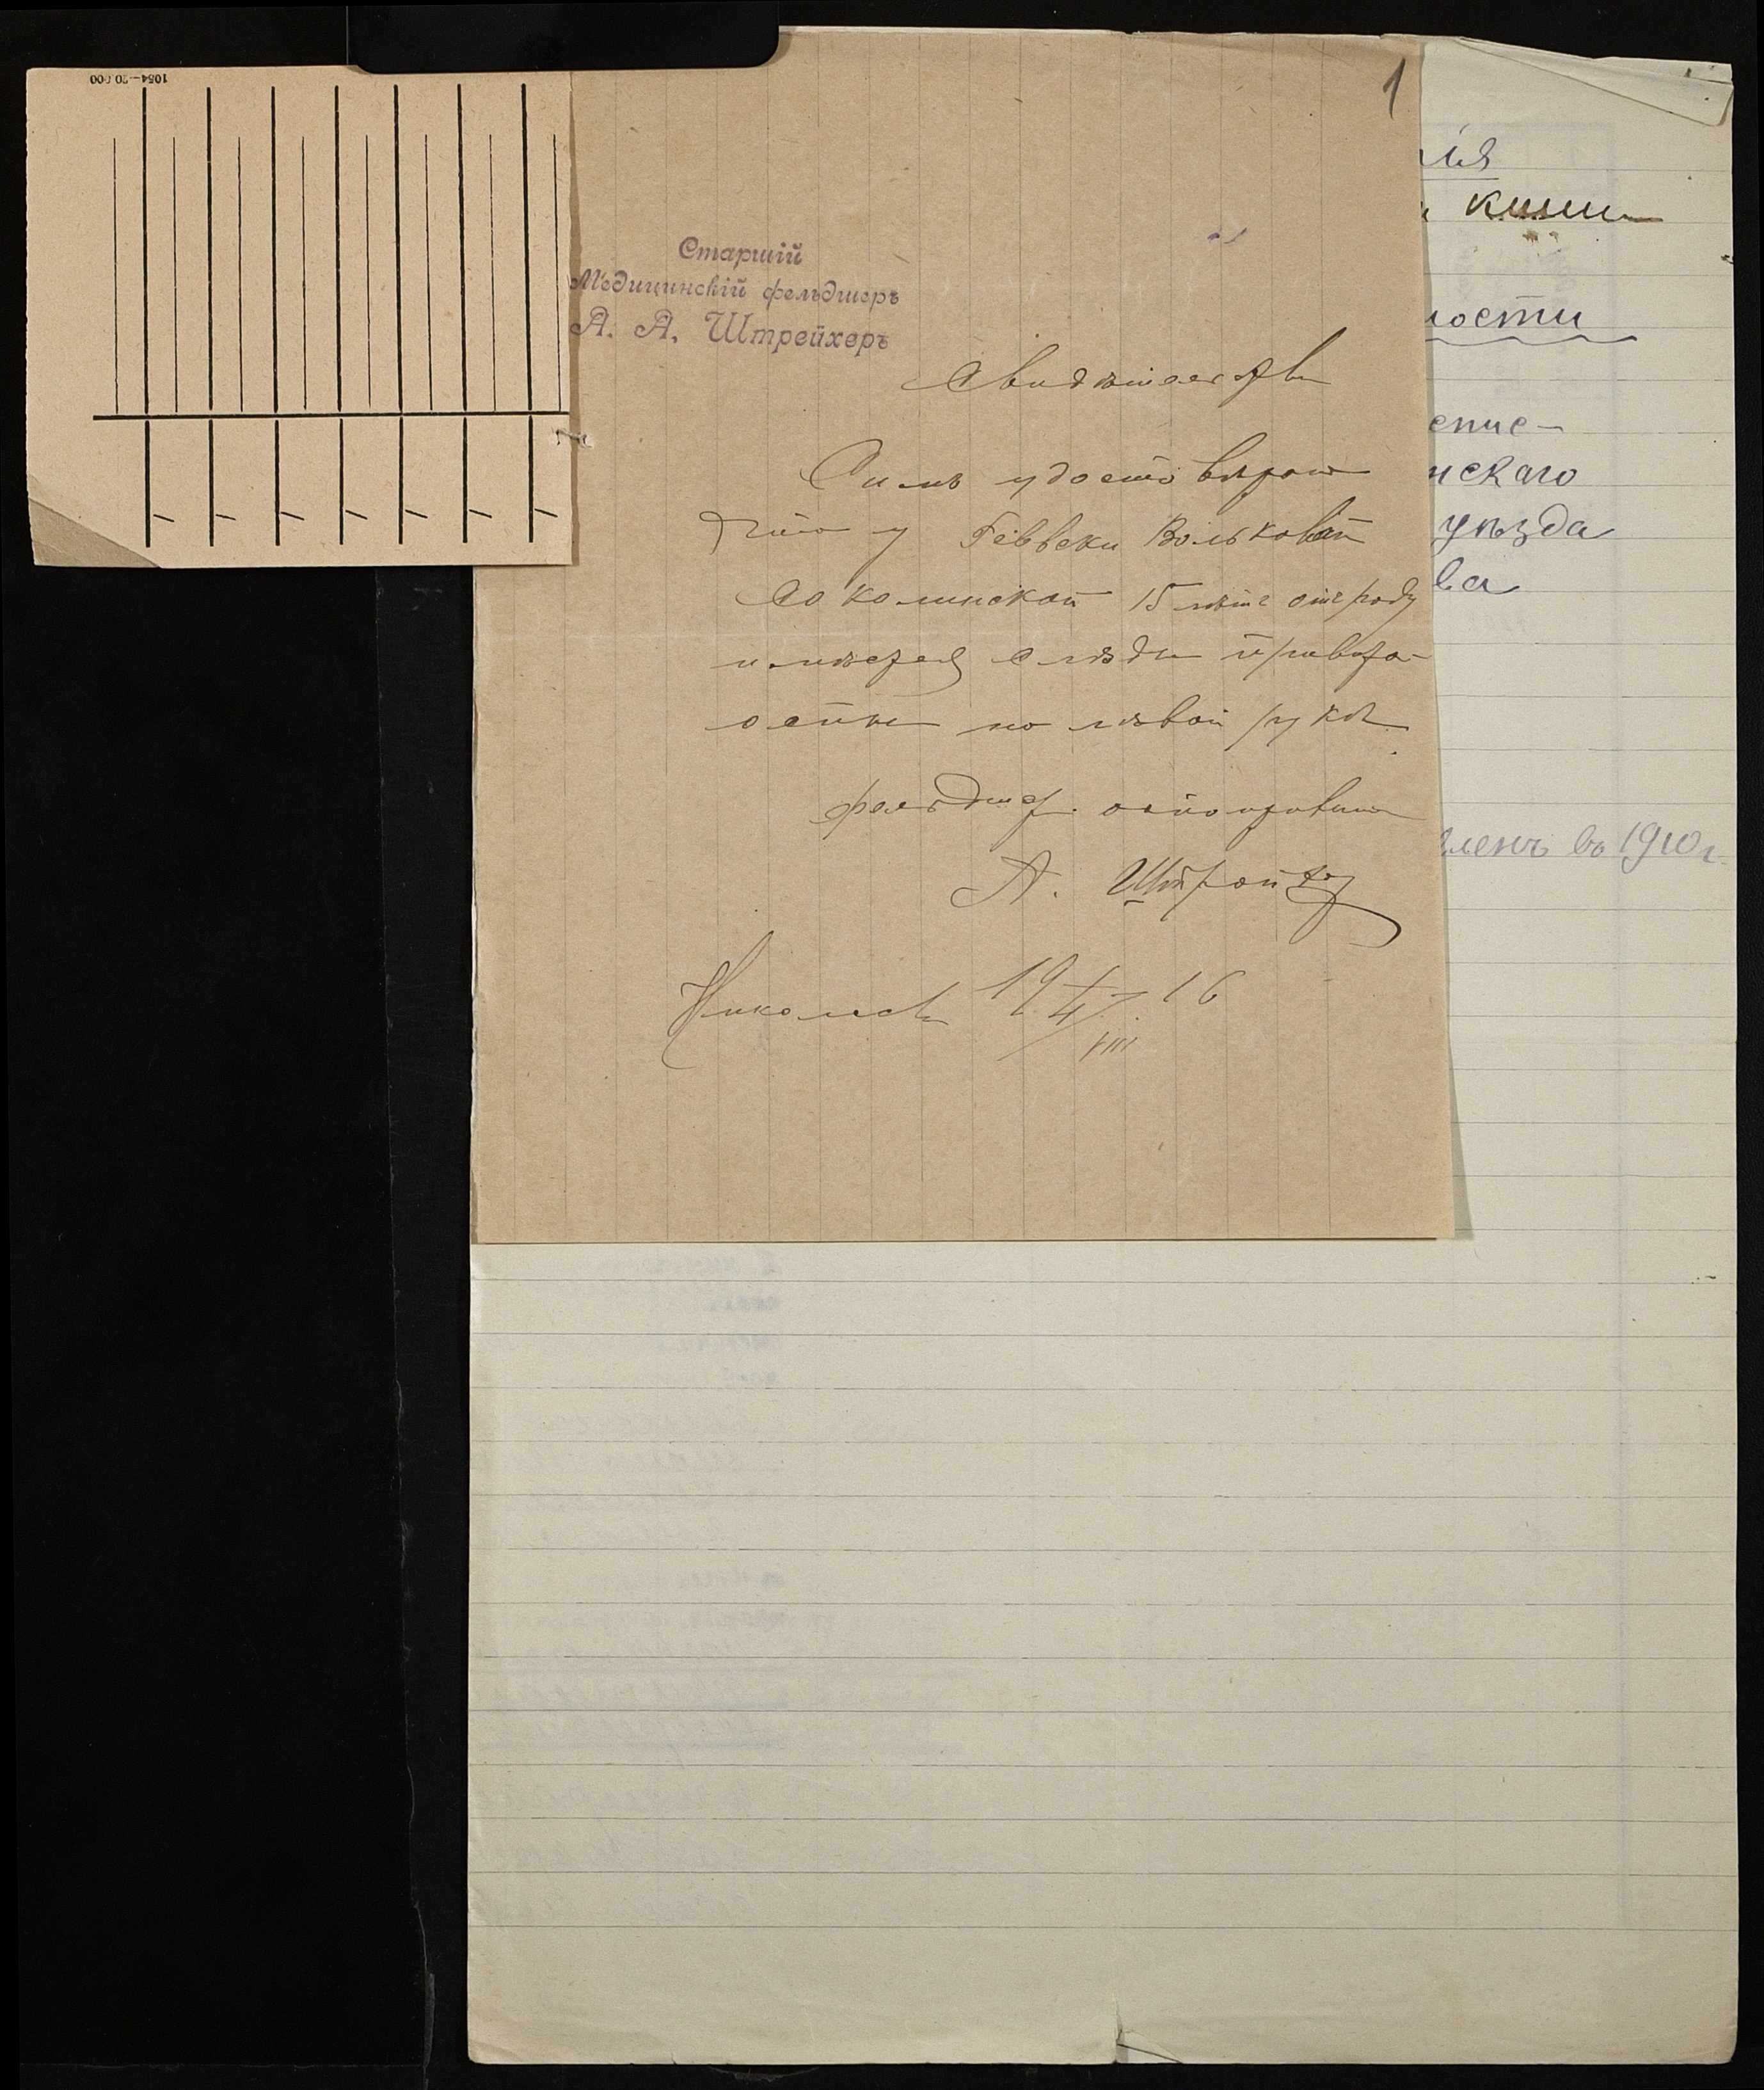 1054—20 000
1
Старшій
Медицинскій фельдшеръ
А. А. Штрейхеръ
Свидѣтельство
Симъ удостовѣряю
что у Ревеки Вольковой
Соколинской 15 лѣтъ отъ роду
имѣется слѣды привитой
оспы на лѣвой рукѣ.
фельдшер. оспопрививат
А. Штрейхер
Николаев 19 4/VIII 16
ія
книги
ности
епис-
нскаго
уѣзда
ва
ленъ въ 1910 г.